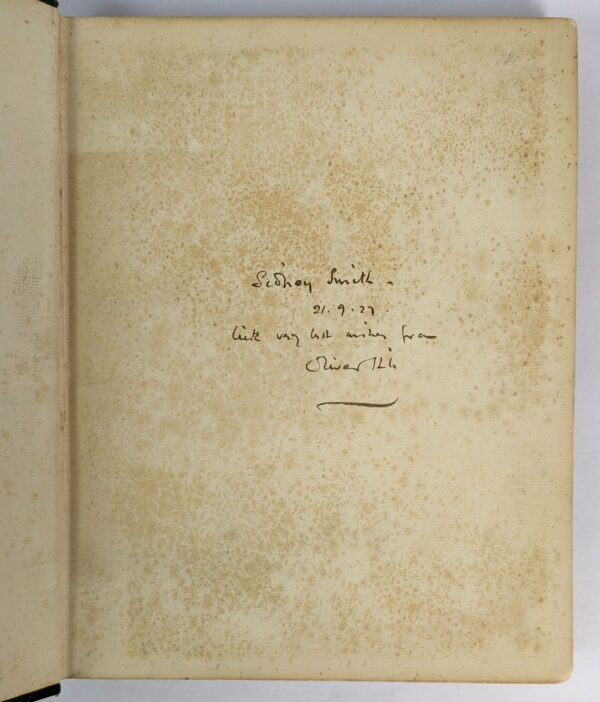 Sidney Smith -
21.9.27.
With very best wishes from
Oliver Hill